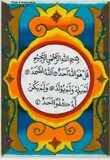 بِسْمِ اللَّهِ الرَّحْمَٰنِ الرَّحِيمِ
قُلْ هُوَ اللَّهُ أَحَدٌ ۝ اللَّهُ الصَّمَدُ ۝
لَمْ يَلِدْ وَلَمْ يُولَدْ ۝ وَلَمْ يَكُنْ
لَهُ كُفُوًا أَحَدٌ ۝